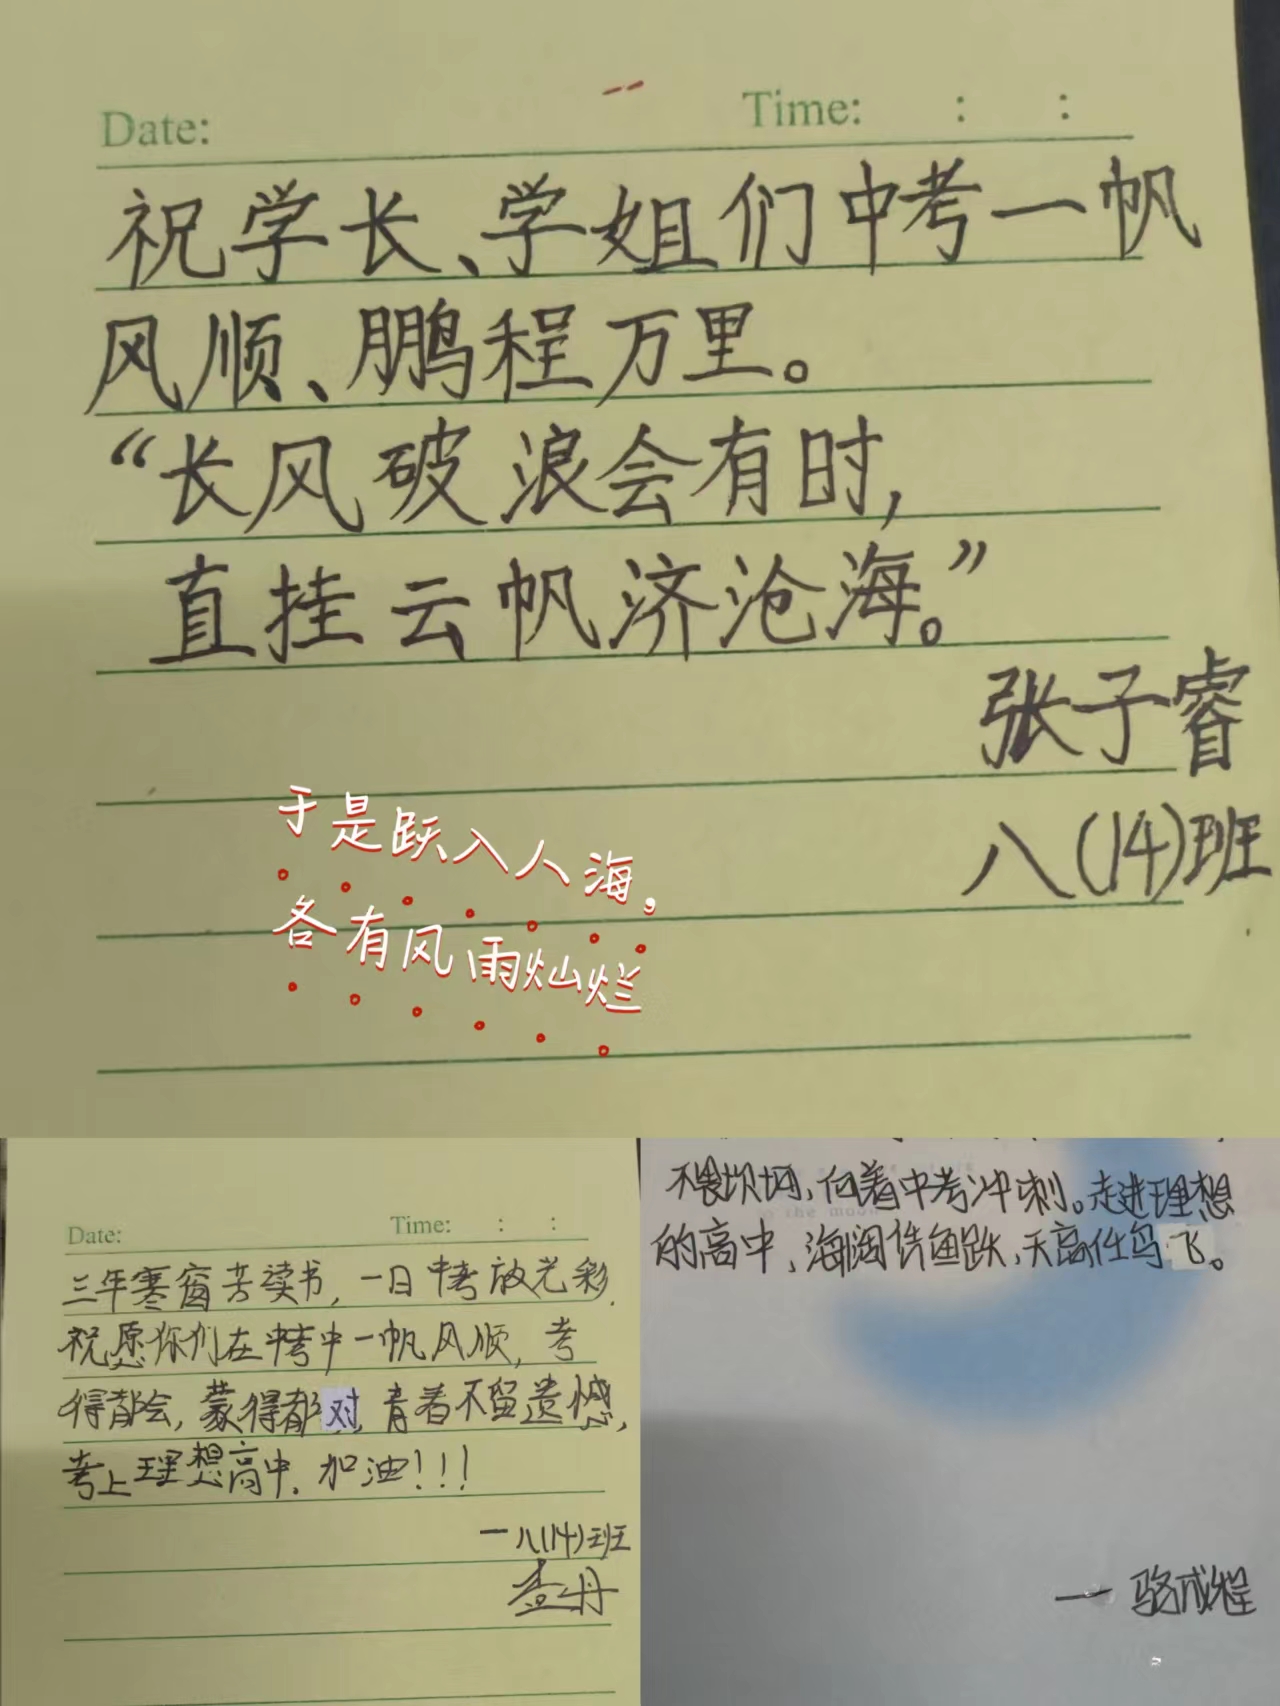 Date: Time: : :
祝学长、学姐们中考一帆
风顺、鹏程万里。
“长风破浪会有时,
直挂云帆济沧海。”
张子睿
八(14)班
于是跃入人海,
各有风雨灿烂
Date: Time: : :
三年寒窗苦读书,一日中考放光彩.
祝愿你们在中考中一帆风顺,考
得都会,蒙得都对,青春不留遗憾,
考上理想高中.加油!!!
一八(14)班
查丹
不畏坎坷,向着中考冲刺。走进理想
的高中,海阔凭鱼跃,天高任鸟飞。
一骆成程